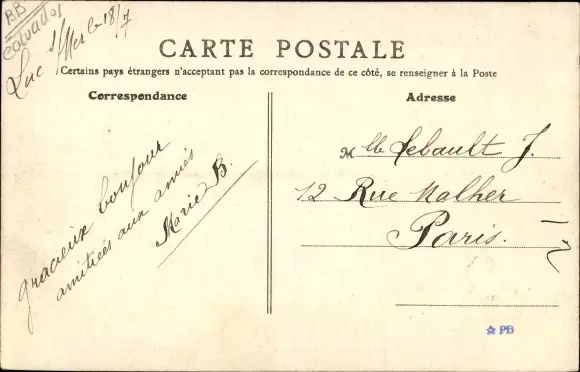 BB
Calvados
Luc s/Mer le 18/7
CARTE POSTALE
Certains pays étrangers n'acceptant pas la correspondance de ce côté, se renseigner à la Poste
Correspondance
Adresse
gracieux bonjour
amitiées aux amies
Marie B.
Mlle Lebault J.
12 Rue Malher
Paris.
PB